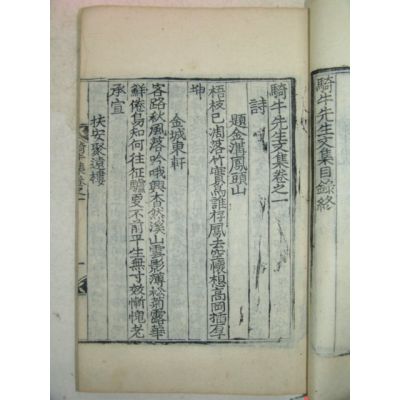 騎牛先生文集目錄終
騎牛先生文集卷之一
詩
題金溝鳳頭山
梧枝已凋落竹實爲誰存鳳去空懷想高岡揷厚
坤
金城東軒
客路秋風落吟哦興杳然溪山雲影薄松菊露華
鮮倦鳥知何往征驂更不前平生無寸效慚愧老
承宣
扶安聚遠樓
騎牛集卷之一